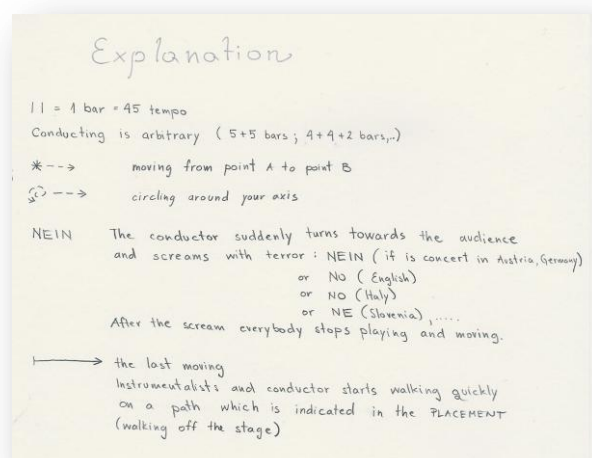 Explanation
| | = 1 bar = 45 tempo
Conducting is arbitrary ( 5+5 bars ; 4+4+2 bars,..)
* --> moving from point A to point B
--> circling around your axis
NEIN The conductor suddenly turns towards the audience
and screams with terror : NEIN ( if is concert in Austria, Germany)
or NO ( English)
or NO (Italy)
or NE (Slovenia) , .....
After the scream everybody stops playing and moving.
the last moving
Instrumentalists and conductor starts walking quickly
on a path which is indicated in the PLACEMENT
(walking off the stage)